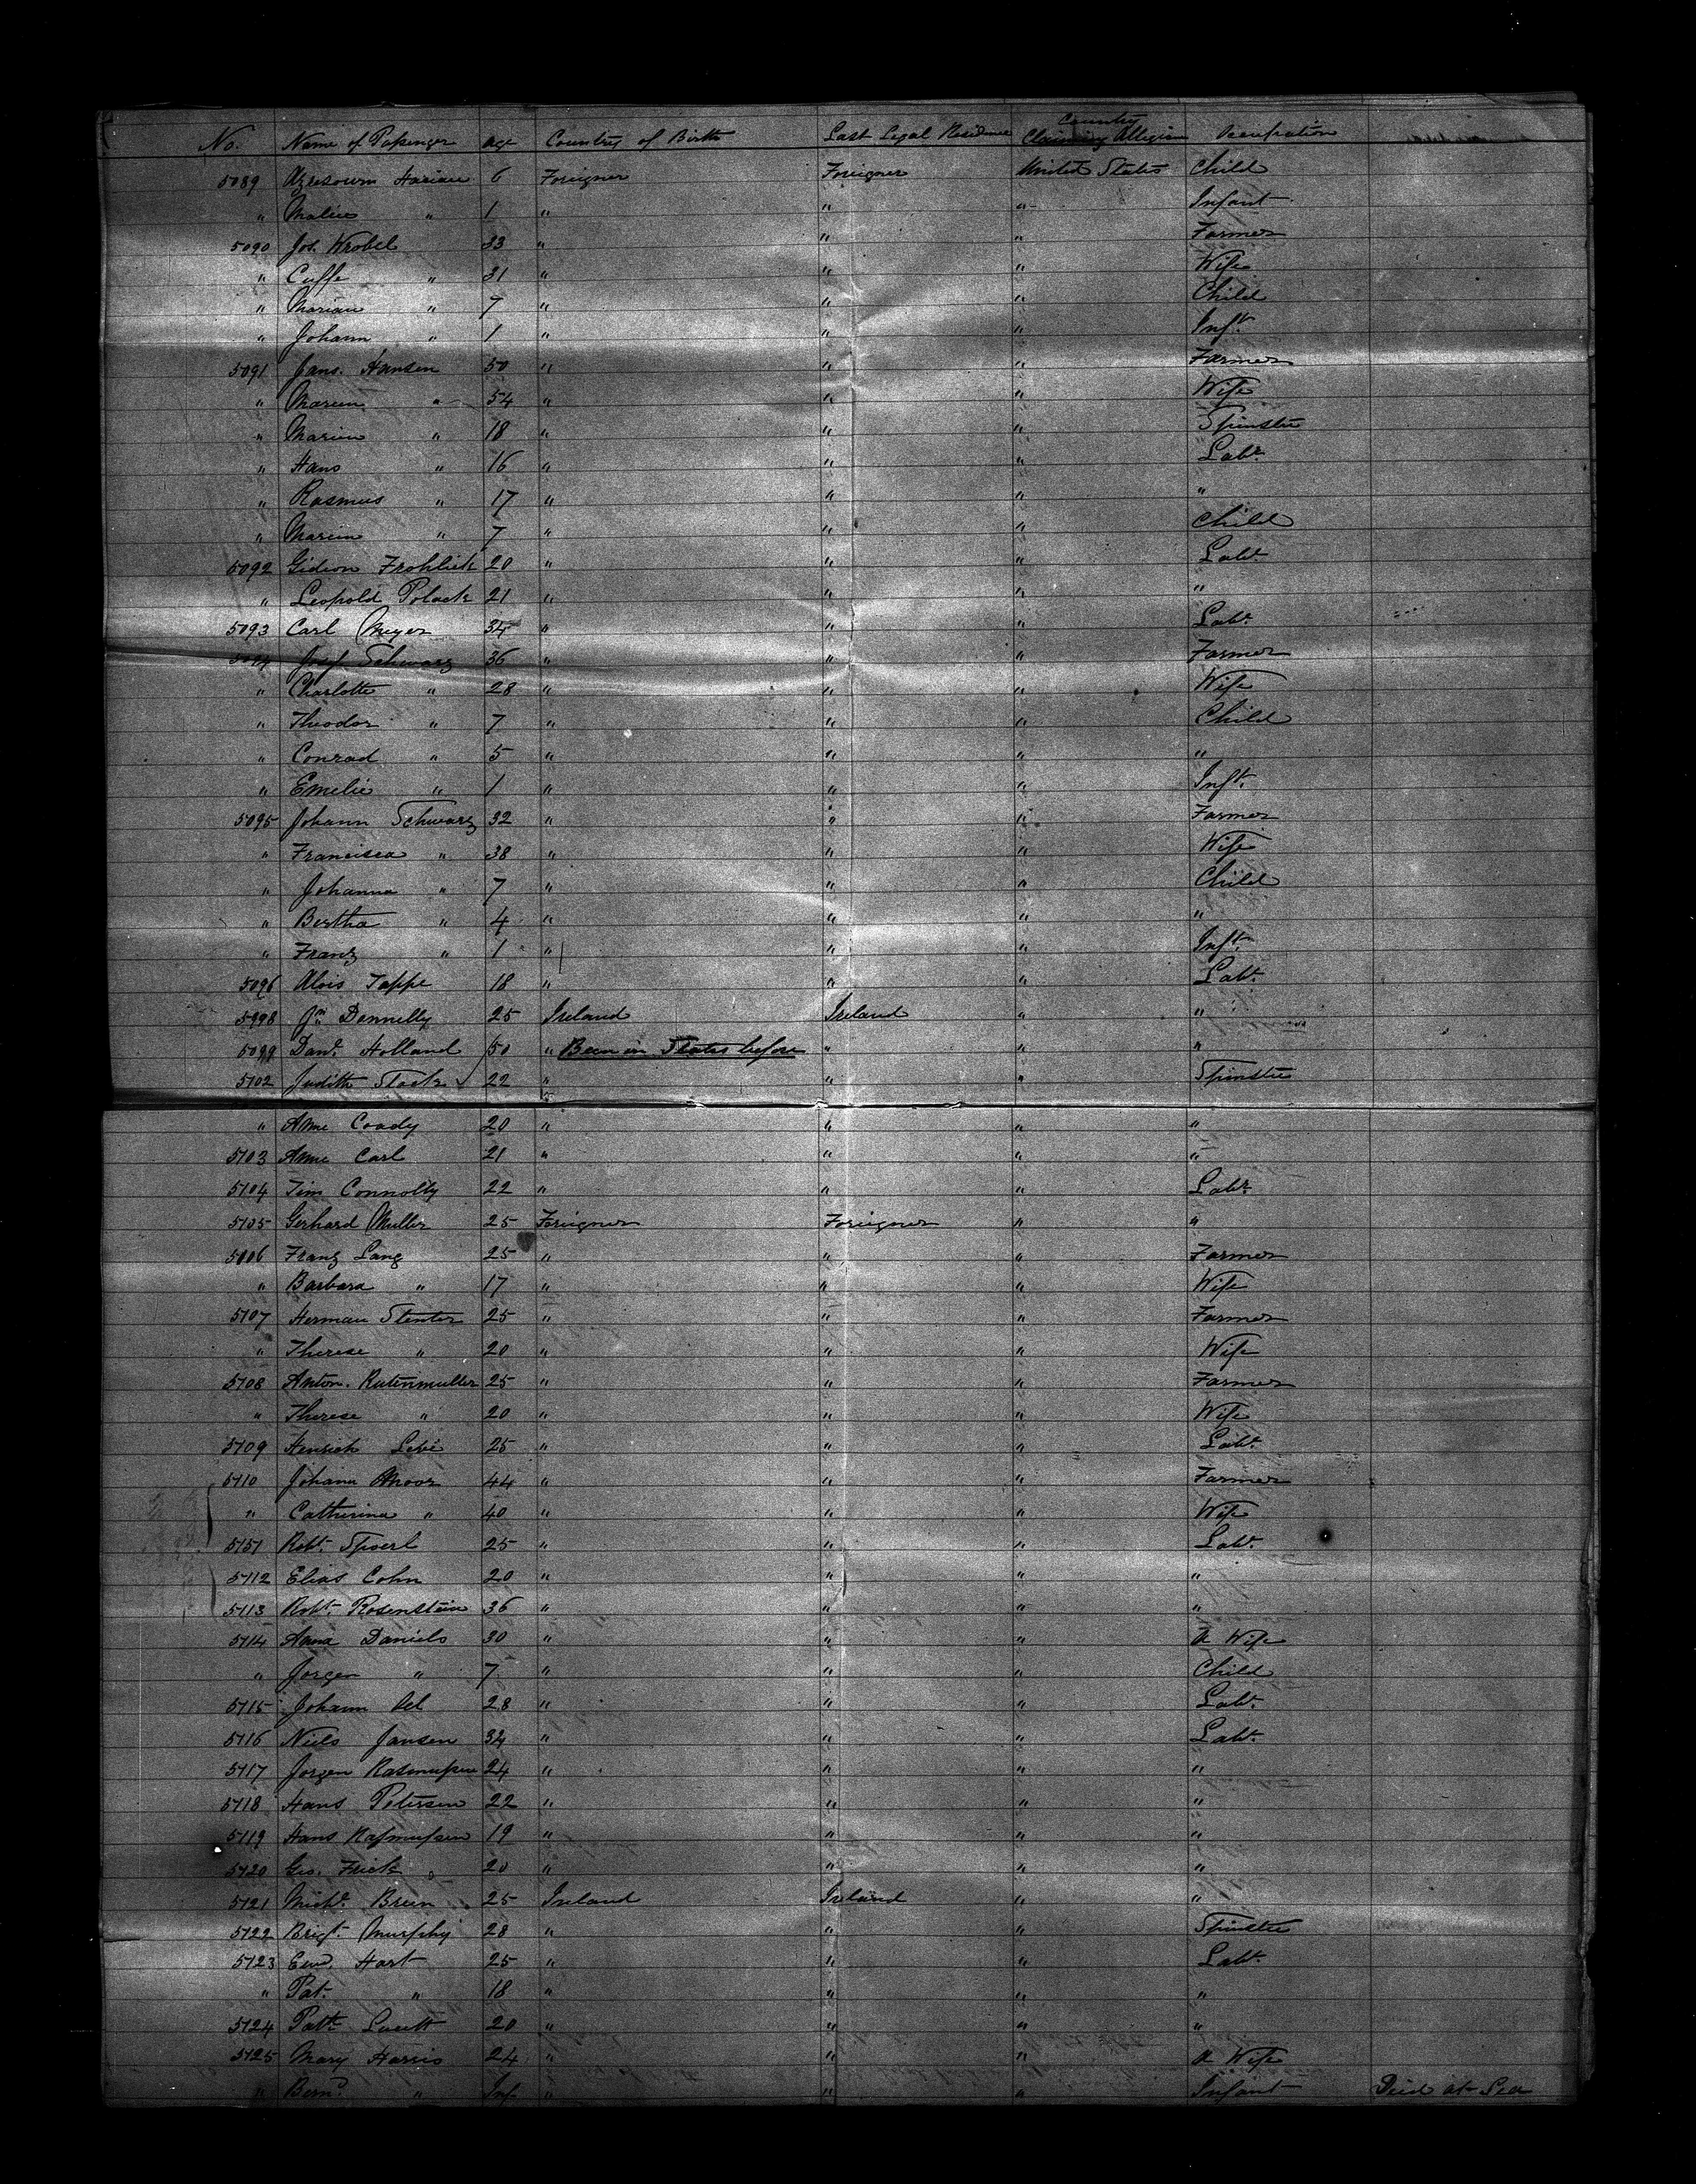 No. Name of Passenger age Country of Birth Last Legal Residence Country Claiming Allegian Occupation
5089 Harian 6 Foreigner Foreigner United States Child
" Malin " 1 " " " Infant
5090 Jos. Wrobel 33 " " " Farmer
" Caffe " 31 " " " Wife
" Marian " 7 " " " Child
" Johann " 1 " " " Inft.
5091 Jans. Hansen 50 " " " Farmer
" Maren " 54 " " " Wife
" Marien " 18 " " " Spinster
" Hans " 16 " " " Labr.
" Rasmus " 17 " " " "
" Marein " 7 " " " Child
5092 Gideon Frohlich 20 " " " Labr.
" Leopold Polack 21 " " " "
5093 Carl Meyer 34 " " " Labr.
5094 Josef Schwarz 36 " " " Farmer
" Charlotte " 28 " " " Wife
" Theodor " 7 " " " Child
" Conrad " 5 " " " "
" Emelie " 1 " " " Inft.
5095 Johann Schwarz 32 " " " Farmer
" Francisca " 38 " " " Wife
" Johanna " 7 " " " Child
" Bertha " 4 " " " "
" Franz " 1 " " " Inft.
5096 Alois Tappe 18 " " " Labr.
5998 Jn Donnelly 25 Ireland Ireland " "
5099 Danl. Holland 50 " Been in States before " " "
5102 Judith Stack 22 " " " Spinster
" Anne Coady 20 " " " "
5103 Anne Carl 21 " " " "
5104 Tim Connolly 22 " " " Labr.
5105 Gerhard Muller 25 Foreigner Foreigner " "
5006 Franz Lang 25 " " " Farmer
" Barbara " 17 " " " Wife
5107 Herman Stenter 25 " " " Farmer
" Therese " 20 " " " Wife
5108 Anton. Rutenmuller 25 " " " Farmer
" Therese " 20 " " " Wife
5109 Henrich Levi 25 " " " Labr.
5110 Johann Moor 44 " " " Farmer
" Catherina " 40 " " " Wife
5151 Robt. Spoerl 25 " " " Labr.
5112 Elias Cohn 20 " " " "
5113 Robt. Rosenstein 36 " " " "
5114 Anna Daniels 30 " " " A Wife
" Jorgen " 7 " " " Child
5115 Johann 28 " " " Labr.
5116 Niels Jansen 32 " " " Labr.
5117 Jorgen Rasmussen 24 " " " "
5118 Hans Petersen 22 " " " "
5119 Hans Rasmussen 19 " " " "
5120 Geo. Frick 20 " " " "
5121 Michl. Breen 25 Ireland Ireland " "
5122 Brigt. Murphy 28 " " " Spinster
5123 Edwd. Hart 25 " " " Labr.
" Pat. " 18 " " " "
5124 Patk. 20 " " " "
5125 Mary Harris 24 " " " A Wife
" Bernd. " Inf " " " Infant Died at Sea